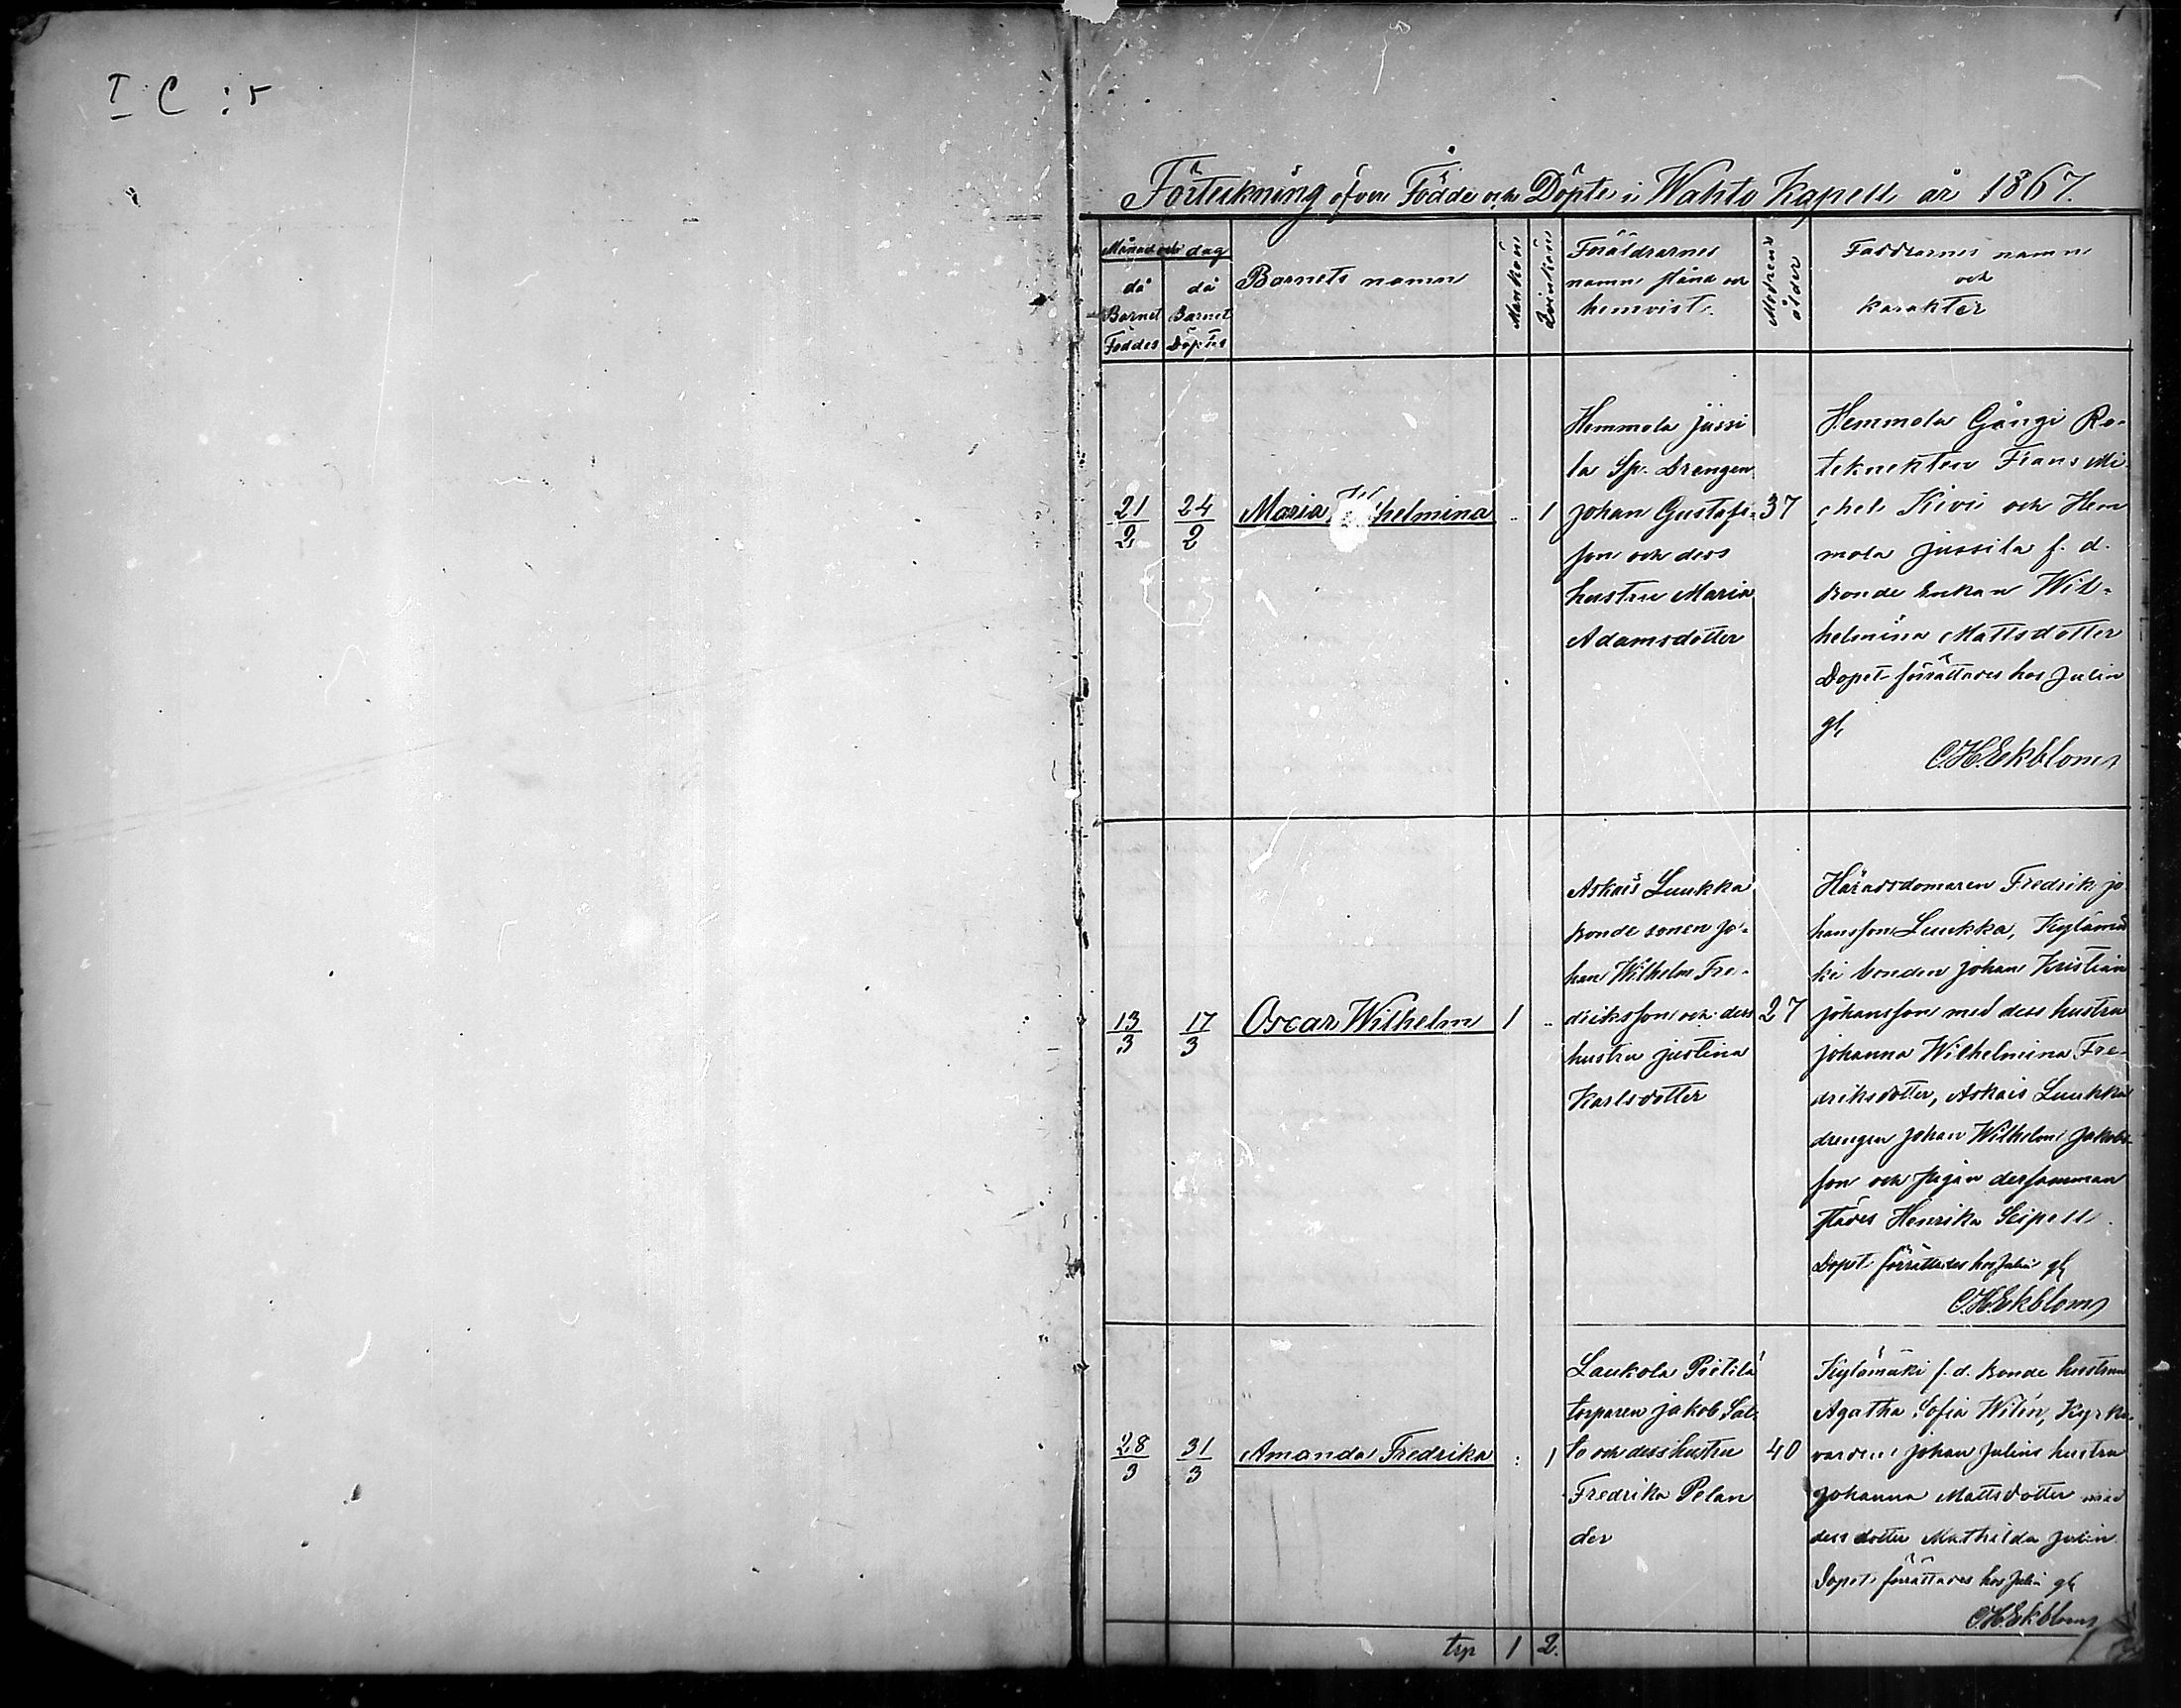 I C : 5
Förteckning öfver Födde och Döpte i Wahto Kapell år 1867.
Månad och dag
då Barnet Föddes
då Barnet Döptes
Barnets namn
Mankön
Qvinkön
Föräldrarnes
namn stånd och
hemvist.
Modrens ålder
Faddrarnes namn
och
karakter
21/2
24/2
Maria Wilhelmina
1
Hemmola Jussi
la Sp. Drengen
Johan Gustafs-
son och dess
hustru Maria
Adamsdotter
37
Hemmola Gångi Ro-
teknekten Frans Mi
chel Kivi och Hem
mola Jussila f. d.
Bonde Enkan Wil-
helmina Mattsdotter
Dopet förrättades hos Julin
af
C.H. Ekblom
13/3
17/3
Oscar Wilhelm
1
Askais Luukka
Bonde sonen Jo-
han Wilhelm Fre-
driksson och dess
hustru Justina
Karlsdotter
27
Häradsdomaren Fredrik Jo
hansson Luukka, Kylämä
ki bonden Johan Kristian
Johansson med dess hustru
Johanna Wilhelmina Fre-
driksdotter, Askais Luukka
drengen Johan Wilhelm Jakobs-
son och pigan dersamman
städes Henrika Seipell.
Dopet förrättades hos Julin af
C.H. Ekblom
28/3
31/3
Amanda Fredrika
1
Laukola Pietilä
torparen Jakob Sal-
to och dess hustru
Fredrika Pelan
der
40
Kylämäki f. d. Bonde hustrun
Agatha Sofia Wilén, Kyrko
värden Johan Julins hustru
Johanna Mattsdotter med
dess dotter Mathilda Julin
Dopet förrättades hos Julin af
C.H. Ekblom
trp 1 2.